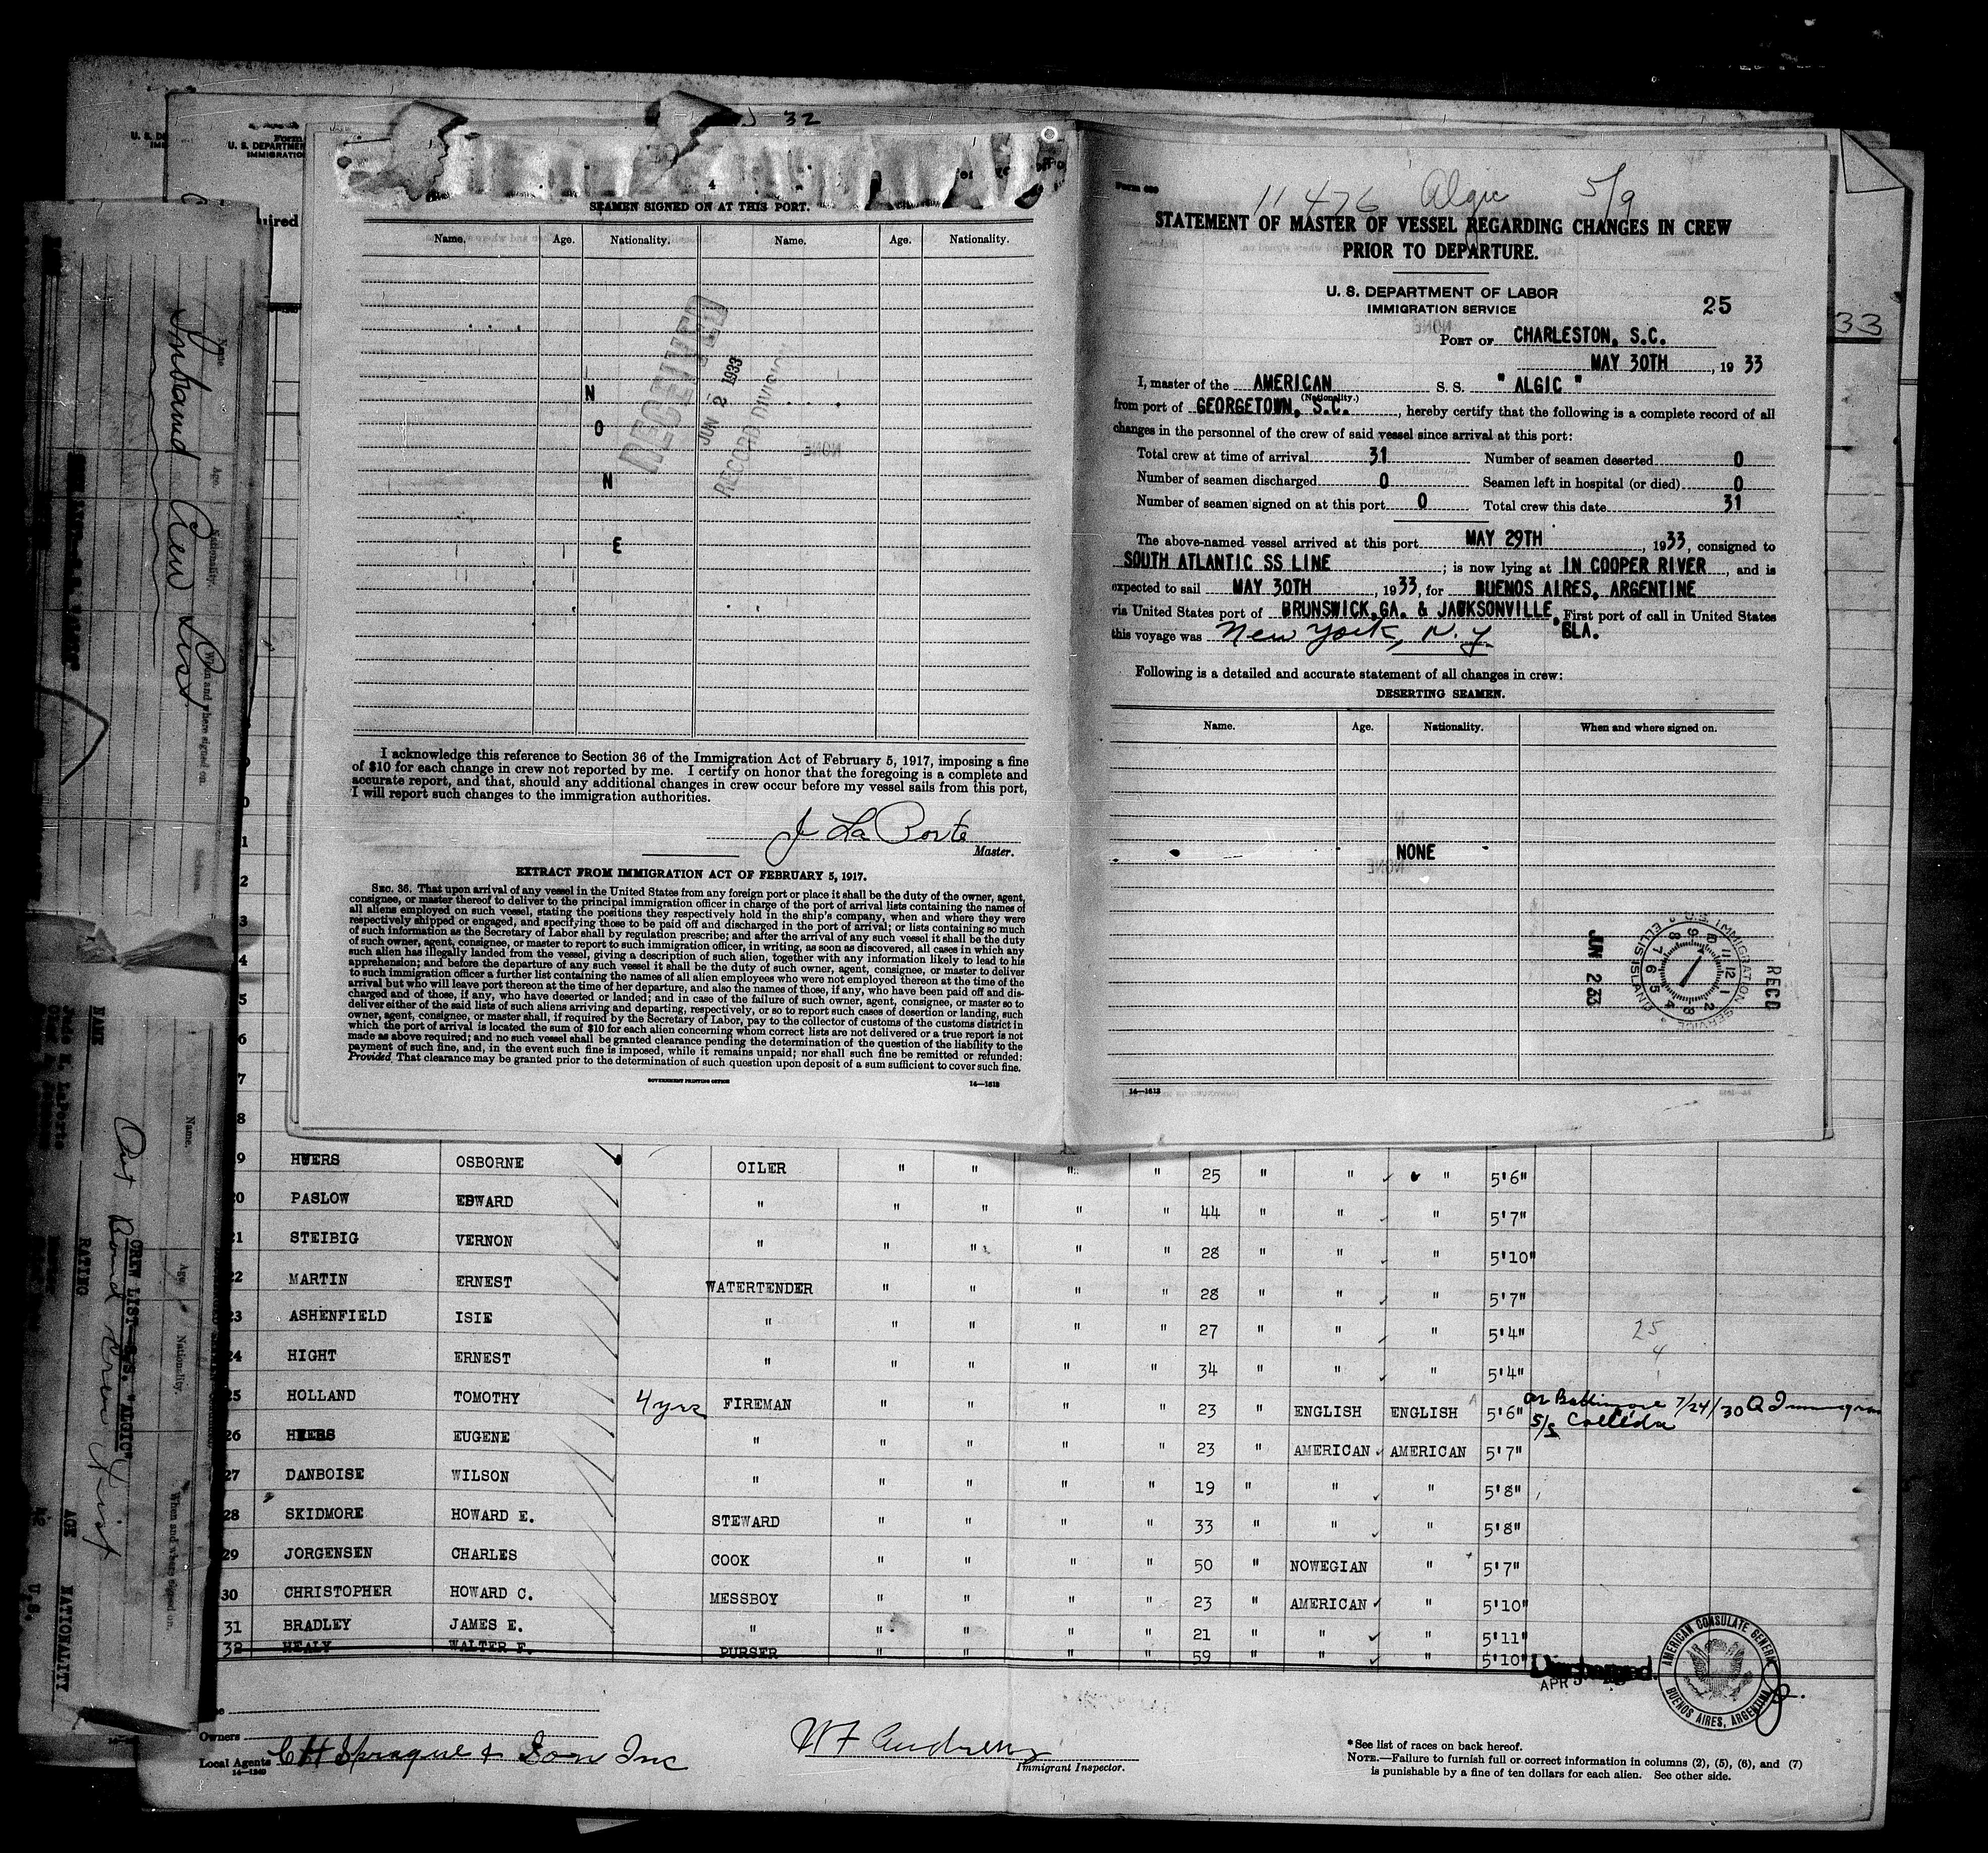 32
Form
U. S. DEPARTMEN
IMMIGRATIO
uired
33
4
SEAMEN SIGNED ON AT THIS PORT.
Name. Age. Nationality. Name. Age. Nationality.
N
O
N
E
RECEIVED
JUN 2 1933
RECORD DIVISION
I acknowledge this reference to Section 36 of the Immigration Act of February 5, 1917, imposing a fine
of $10 for each change in crew not reported by me. I certify on honor that the foregoing is a complete and
accurate report, and that, should any additional changes in crew occur before my vessel sails from this port,
I will report such changes to the immigration authorities.
J La Porte
Master.
EXTRACT FROM IMMIGRATION ACT OF FEBRUARY 5, 1917.
SEC. 36. That upon arrival of any vessel in the United States from any foreign port or place it shall be the duty of the owner, agent,
consignee, or master thereof to deliver to the principal immigration officer in charge of the port of arrival lists containing the names of
all aliens employed on such vessel, stating the positions they respectively hold in the ship's company, when and where they were
respectively shipped or engaged, and specifying those to be paid off and discharged in the port of arrival; or lists containing so much
of such information as the Secretary of Labor shall by regulation prescribe; and after the arrival of any such vessel it shall be the duty
of such owner, agent, consignee, or master to report to such immigration officer, in writing, as soon as discovered, all cases in which any
such alien has illegally landed from the vessel, giving a description of such alien, together with any information likely to lead to his
apprehension; and before the departure of any such vessel it shall be the duty of such owner, agent, consignee, or master to deliver
to such immigration officer a further list containing the names of all alien employees who were not employed thereon at the time of the
arrival but who will leave port thereon at the time of her departure, and also the names of those, if any, who have been paid off and dis-
charged and of those, if any, who have deserted or landed; and in case of the failure of such owner, agent, consignee, or master so to
deliver either of the said lists of such aliens arriving and departing, respectively, or so to report such cases of desertion or landing, such
owner, agent, consignee, or master shall, if required by the Secretary of Labor, pay to the collector of customs of the customs district in
which the port of arrival is located the sum of $10 for each alien concerning whom correct lists are not delivered or a true report is not
made as above required; and no such vessel shall be granted clearance pending the determination of the question of the liability to the
payment of such fine, and, in the event such fine is imposed, while it remains unpaid; nor shall such fine be remitted or refunded:
Provided, That clearance may be granted prior to the determination of such question upon deposit of a sum sufficient to cover such fine.
GOVERNMENT PRINTING OFFICE 14—1613
11476 Algic 5/9
STATEMENT OF MASTER OF VESSEL REGARDING CHANGES IN CREW
PRIOR TO DEPARTURE.
U. S. DEPARTMENT OF LABOR
IMMIGRATION SERVICE
25
PORT OF CHARLESTON, S.C.
MAY 30TH, 1933
I, master of the AMERICAN S. S. " ALGIC "
(Nationality.)
from port of GEORGETOWN, S.C., hereby certify that the following is a complete record of all
changes in the personnel of the crew of said vessel since arrival at this port:
Total crew at time of arrival 31 Number of seamen deserted 0
Number of seamen discharged 0 Seamen left in hospital (or died) 0
Number of seamen signed on at this port 0 Total crew this date 31
The above-named vessel arrived at this port MAY 29TH, 1933, consigned to
SOUTH ATLANTIC SS LINE; is now lying at IN COOPER RIVER, and is
expected to sail MAY 30TH, 1933, for BUENOS AIRES, ARGENTINE
via United States port of BRUNSWICK,GA. & JACKSONVILLE, First port of call in United States
this voyage was New York, N.Y. GLA.
Following is a detailed and accurate statement of all changes in crew:
DESERTING SEAMEN.
Name. Age. Nationality. When and where signed on.
NONE
U.S. IMMIGRATION SERVICE ELLIS ISLAND
REC'D
JUN 2 33
14—1613
Inbound Crew List
Out Bound Crew List
CREW LIST S.S. "ALGIC"
NAME RATING AGE NATIONALITY
9 HUERS OSBORNE OILER " " " " 25 " " " 5'6"
20 PASLOW EDWARD " " " " " 44 " " " 5'7"
21 STEIBIG VERNON " " " " " 28 " " " 5'10"
22 MARTIN ERNEST WATERTENDER " " " " 28 " " " 5'7"
23 ASHENFIELD ISIE " " " " " 27 " " " 5'4"
25
4
24 HIGHT ERNEST " " " " " 34 " " " 5'4"
25 HOLLAND TOMOTHY 4 yrs FIREMAN " " " " 23 " ENGLISH ENGLISH 5'6" Baltimore 7/24/30
S/S
26 EUGENE " " " " " 23 " AMERICAN AMERICAN 5'7"
27 DANBOISE WILSON " " " " " 19 " " " 5'8"
28 SKIDMORE HOWARD E. STEWARD " " " " 33 " " " 5'8"
29 JORGENSEN CHARLES COOK " " " " 50 " NOWEGIAN " 5'7"
30 CHRISTOPHER HOWARD C. MESSBOY " " " " 23 " AMERICAN " 5'10"
31 BRADLEY JAMES E. " " " " " 21 " " " 5'11"
32 HEALY WALTER F. PURSER " " " " 59 " " " 5'10" Discharged.
APR
AMERICAN CONSULATE GENERAL BUENOS AIRES, ARGENTINA
Owners
Local Agents C H Sprague & Son Inc
14—1240
W F Andrews
Immigrant Inspector.
*See list of races on back hereof.
NOTE.—Failure to furnish full or correct information in columns (2), (5), (6), and (7)
is punishable by a fine of ten dollars for each alien. See other side.